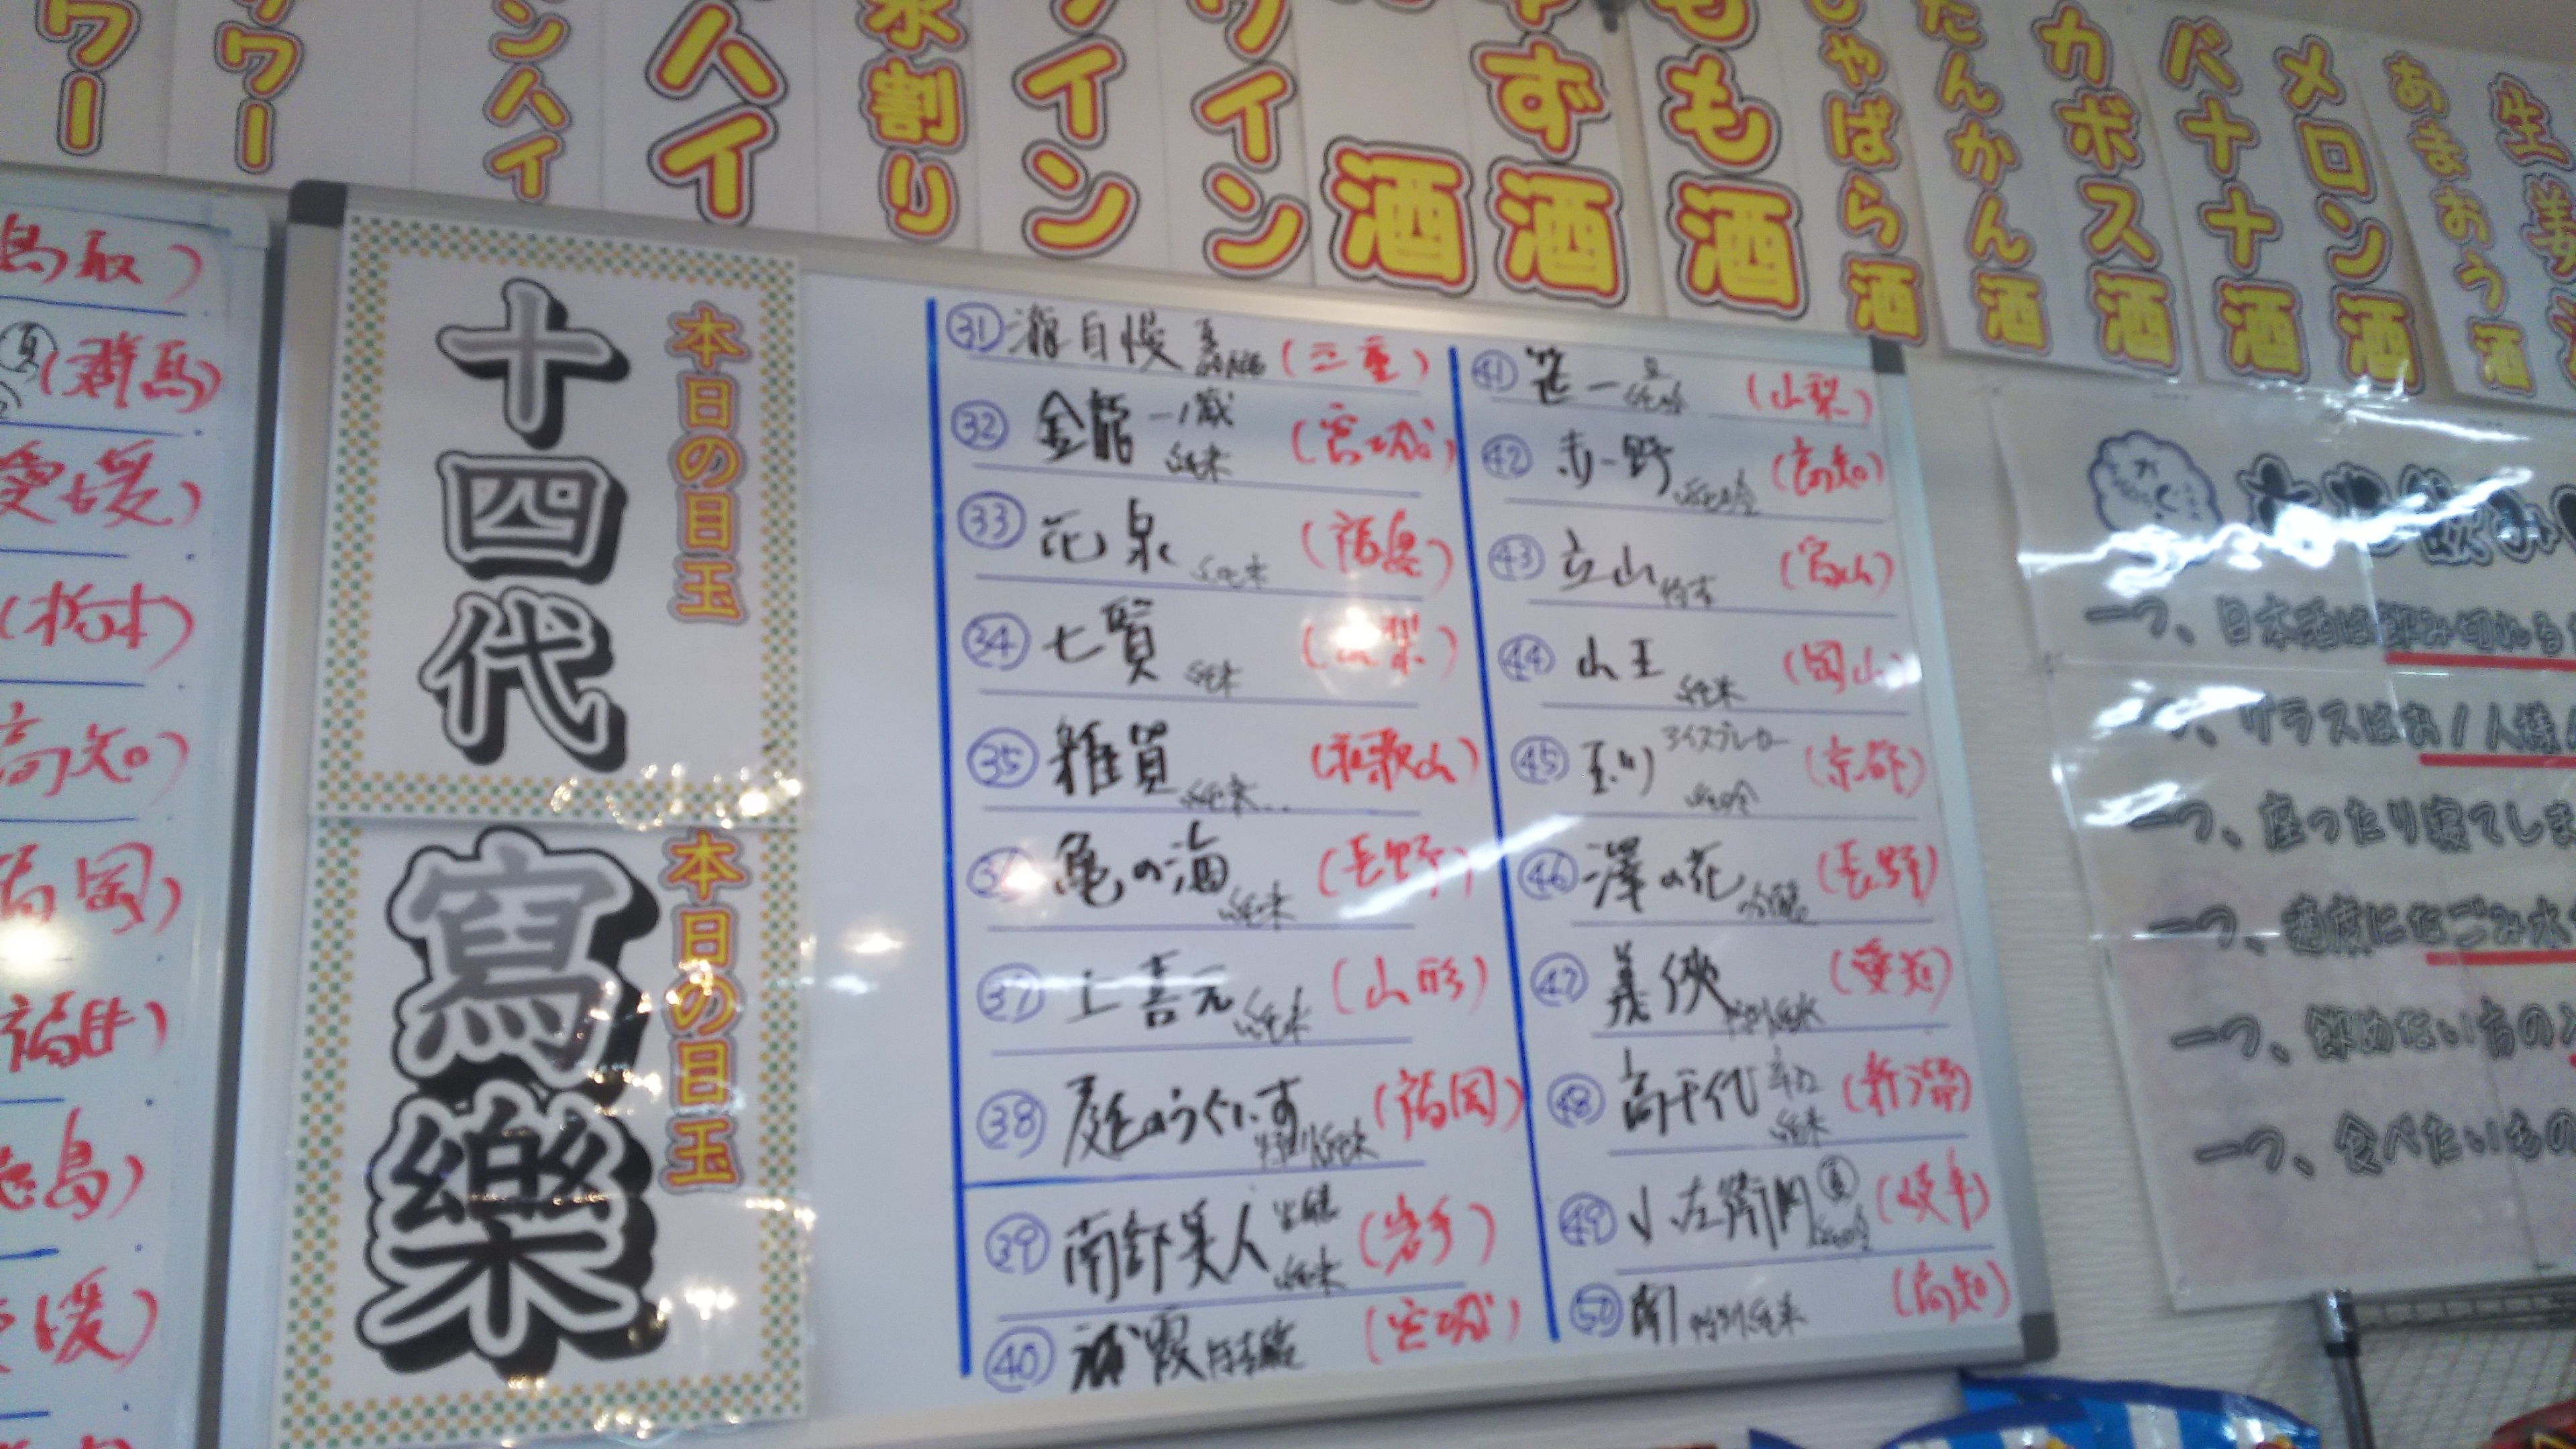 ワー
ワー
ンハイ
ハイ
水割り
イン
ワイン
酒
ず酒
もも酒
じゃばら酒
たんかん酒
カボス酒
バナナ酒
メロン酒
あまおう酒
生姜
鳥取)
夏(群馬)
愛媛)
(栃木)
高知)
福岡)
福井)
島)
媛)
本日の目玉
十四代
本日の目玉
寫樂
㉛瀧自慢(三重)
㉜金龍一ノ蔵純米(宮城)
㉝花泉純米(福島)
㉞七賢純米(山梨)
㉟雑賀純米(和歌山)
㊱亀の海純米(長野)
㊲上喜元純米(山形)
㊳庭のうぐいす特別純米(福岡)
㊴南部美人純米(岩手)
㊵浦霞(宮城)
㊶笹一純吟(山梨)
㊷赤野純吟(高知)
㊸立山特本(富山)
㊹山王純米(岡山)
㊺玉川アイスブレーカー純吟(京都)
㊻澤の花(長野)
㊼義侠特別純米(愛知)
㊽高千代辛口純米(新潟)
㊾小左衛門夏純吟(岐阜)
㊿南特別純米(高知)
飲み
一つ、日本酒は飲み切れる
一つ、グラスはお1人様
一つ、座ったり寝てしま
一つ、適度になごみ水
一つ、飲めない方の
一つ、食べたいもの